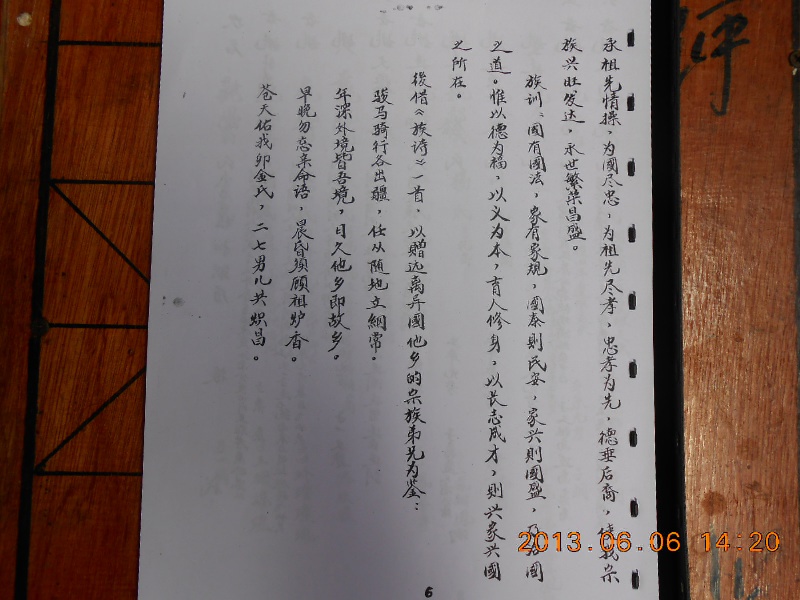 承祖先情操，为國尽忠，为祖先尽孝，忠孝为先，德垂后裔，使我宗
族兴旺发达，永世繁荣昌盛。
族训：國有國法，家有家規，國泰则民安，家兴则國盛，乃治國
之道。惟以德为福，以义为本，育人修身，以长志成才，则兴家兴國
之所在。
後借《族谤》一首，以赠远离异國他乡的宗族弟兄为鉴：
骏马骑行各出疆，任从随地立綱常。
年深外境皆吾境，日久他乡即故乡。
早晚勿忘亲命语，晨昏须顾祖炉香。
苍天佑我卯金氏，二七男儿共炽昌。
6
2013.06.06 14:20